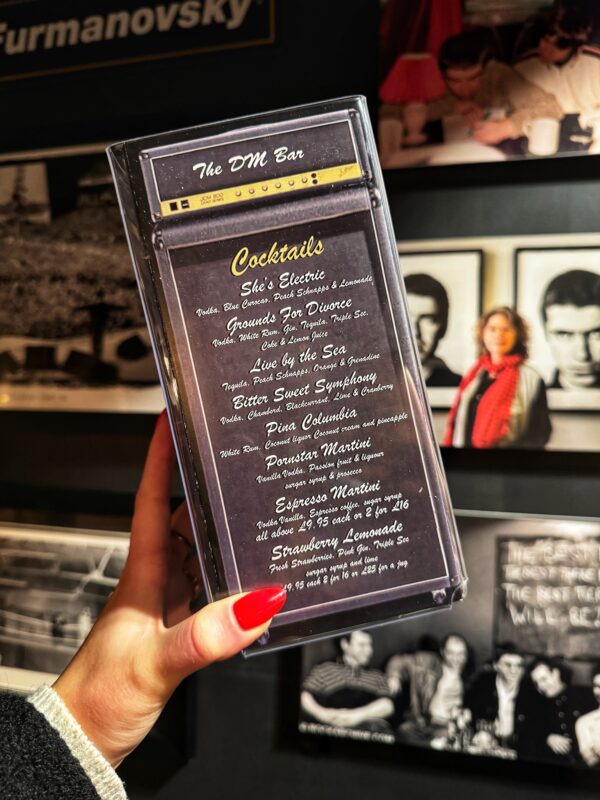 Furmanovsky
The DM Bar
JCM 800
LEAD SERIES
Cocktails
She's Electric
Vodka, Blue Curocao, Peach Schnapps & Lemonade
Grounds For Divorce
Vodka, White Rum, Gin, Tequila, Triple Sec,
Coke & Lemon Juice
Live by the Sea
Tequila, Peach Schnapps, Orange & Grenadine
Bitter Sweet Symphony
Vodka, Chambord, Blackcurrant, Lime & Cranberry
Pina Columbia
White Rum, Coconut liquor Coconut cream and pineapple
Pornstar Martini
Vanilla Vodka, Passion fruit & liquour
surgar syrup & prosecco
Espresso Martini
Vodka Vanilla, Espresso coffee, sugar syrup
all above £9.95 each or 2 for £16
Strawberry Lemonade
Fresh Strawberries, Pink Gin, Triple Sec
surgar syrup and lime
£9.95 each 2 for 16 or £25 for a jug
THE BEST
WILL BE